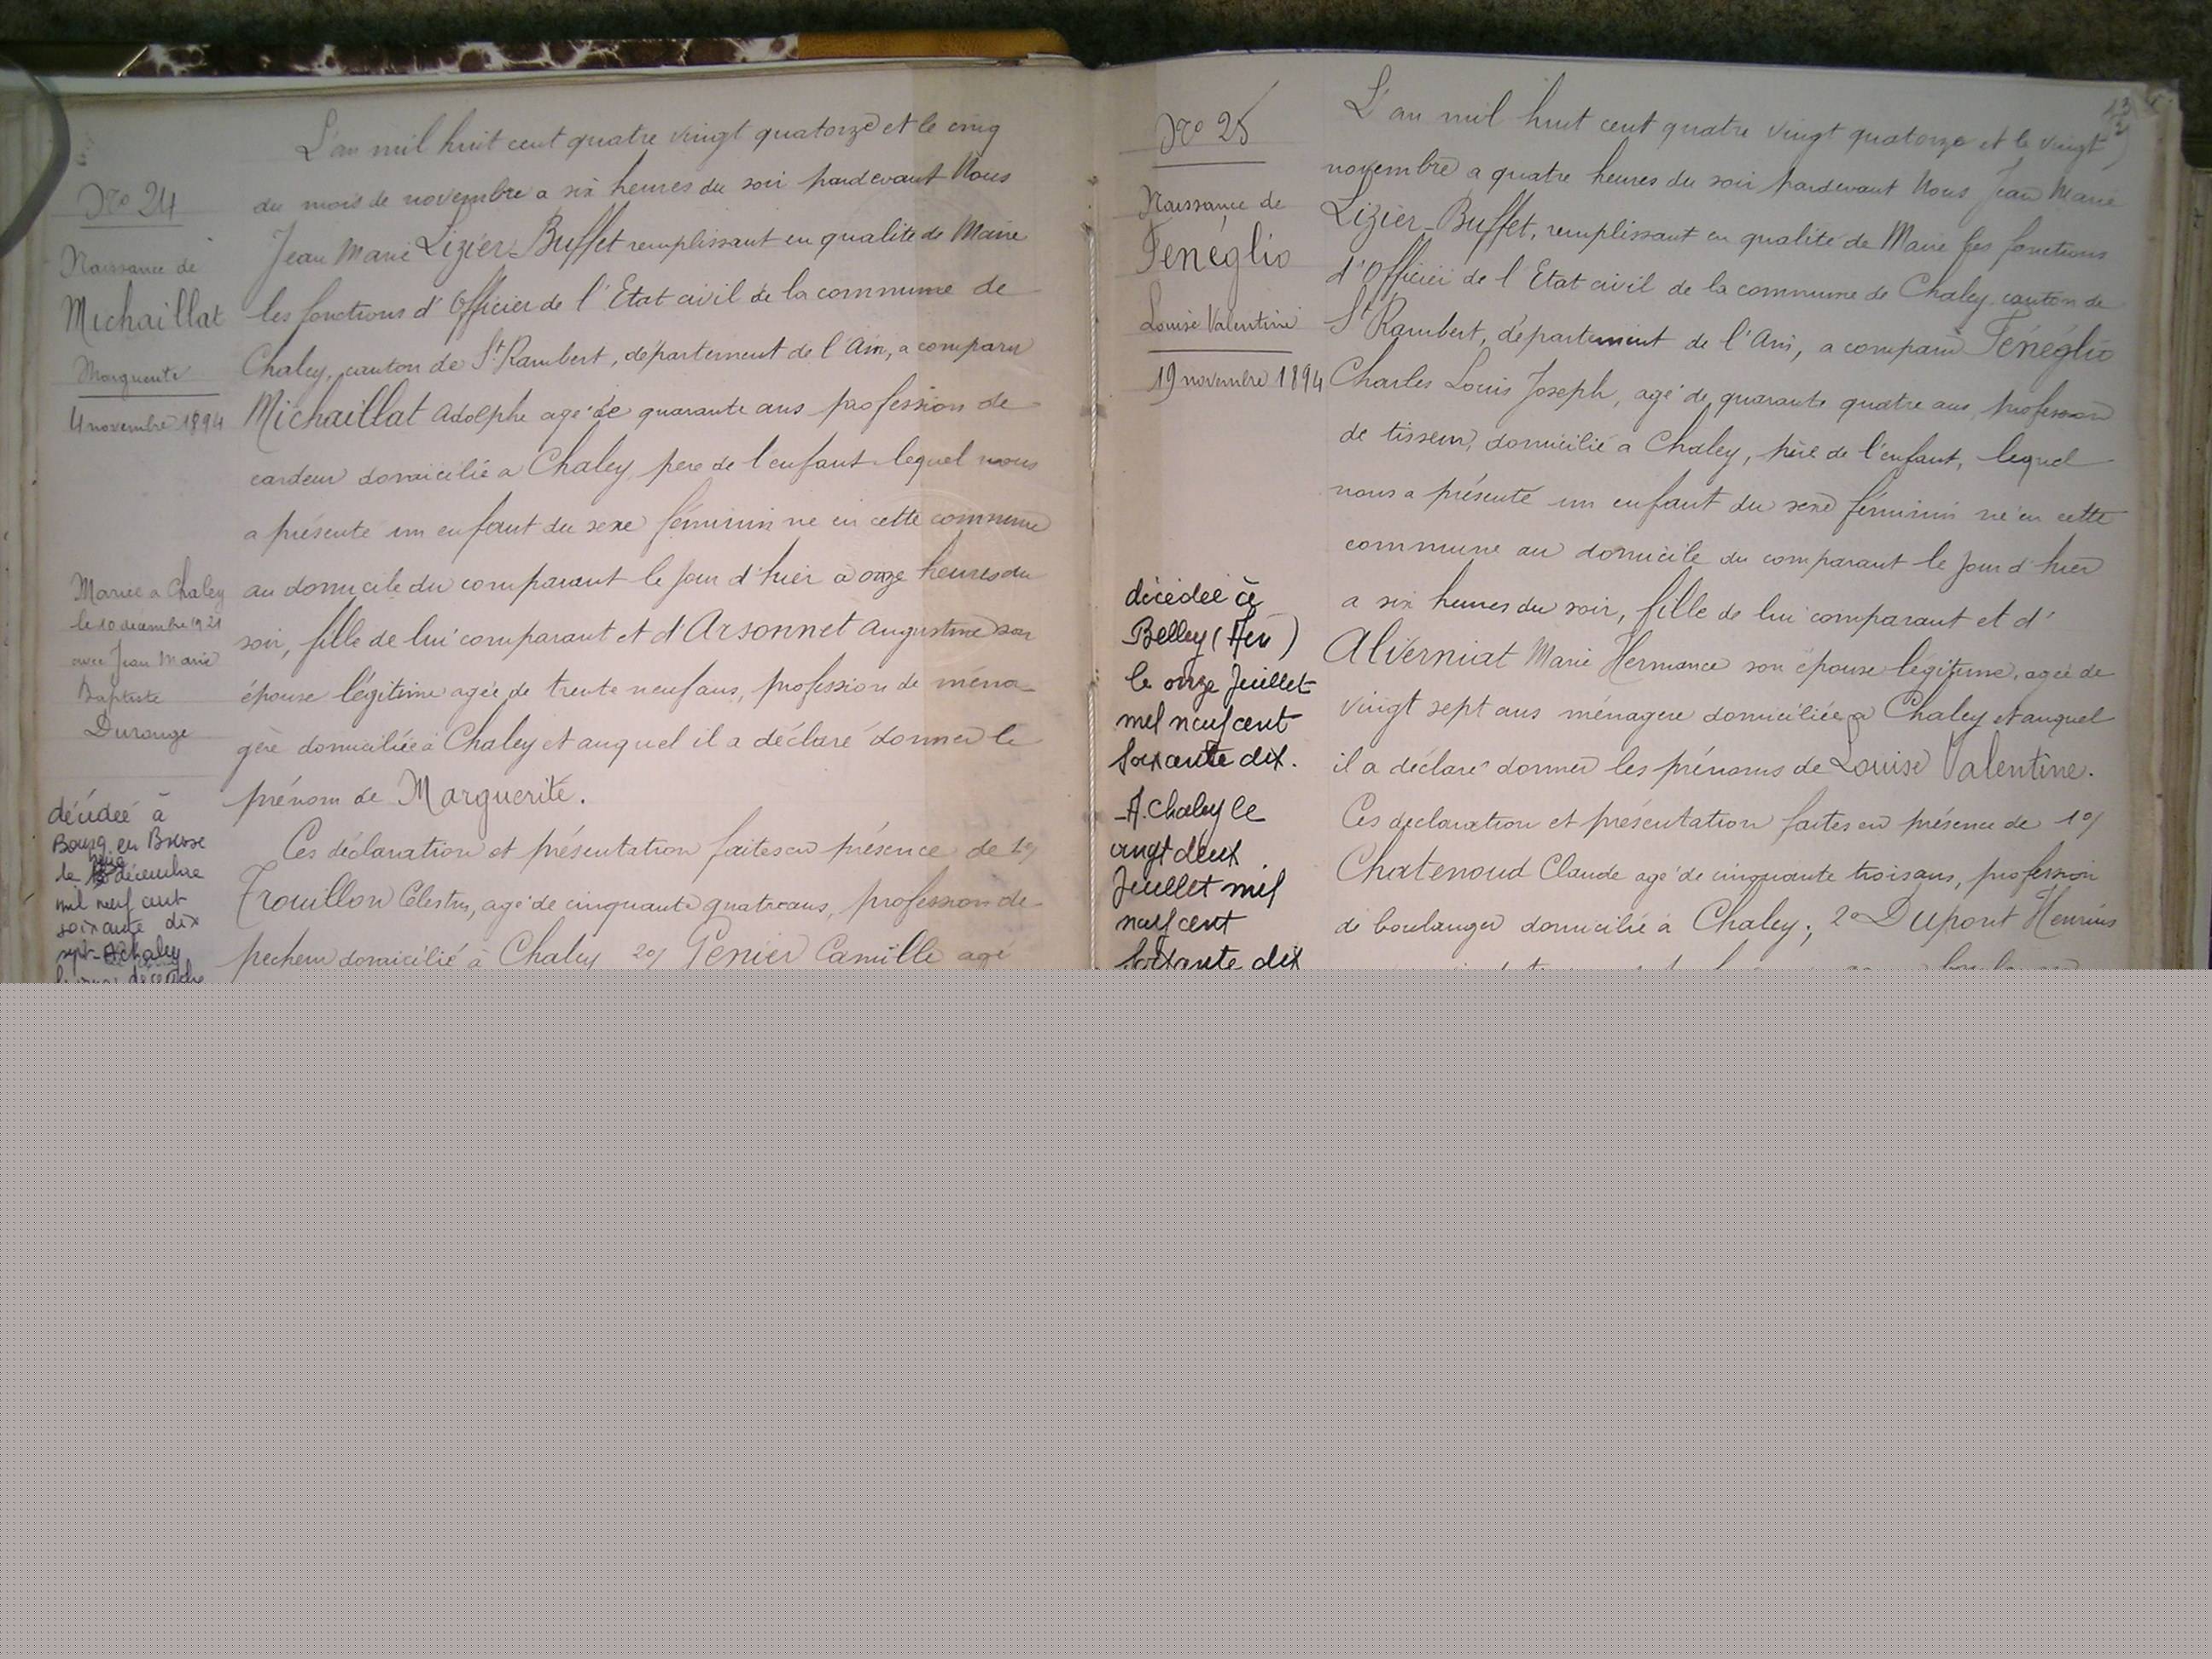 No 24
Naissance de
Michaillat
Marguerite
4 novembre 1894
Mariée a Chaley
le 10 decembre 1921
avec Jean Marie
Baptiste
Durouge
décédée à
Bourg en Bresse
le décembre
mil neuf cent
soixante dix
sept - A Chaley
décembre
L'an mil huit cent quatre vingt quatorze et le cinq
du mois de novembre a six heures du soir pardevant Nous
Jean Marie Lizier-Buffet remplissant en qualité de Maire
les fonctions d'Officier de l'Etat civil de la commune de
Chaley, canton de St Rambert, département de l'Ain, a comparu
Michaillat Adolphe agé de quarante ans profession de
cardeur domicilié a Chaley, pere de l'enfant lequel nous
a présenté un enfant du sexe féminin né en cette commune
au domicile du comparant le jour d'hier a onze heures du
soir, fille de lui comparant et d'Arsonnet Augustine son
épouse légitime agée de trente neuf ans, profession de ména-
gère domiciliée à Chaley et auquel il a déclaré donner le
prénom de Marguerite.
Ces déclaration et présentation faites en présence de 1o/
Trouillon Celestin, agé de cinquante quatre ans, profession de
pecheur domicilié à Chaley 2o/ Genier Camille agé
No 25
Naissance de
Fenéglio
Louise Valentine
19 novembre 1894
décédée à
Belley (Ain)
le onze Juillet
mil neuf cent
soixante dix.
- A Chaley le
vingt deux
Juillet mil
neuf cent
soixante dix
L'an mil huit cent quatre vingt quatorze et le vingt
novembre a quatre heures du soir pardevant Nous Jean Marie
Lizier-Buffet, remplissant en qualité de Maire les fonctions
d'Officier de l'Etat civil de la commune de Chaley canton de
St Rambert, département de l'Ain, a comparu Fénéglio
Charles Louis Joseph, agé de quarante quatre ans, profession
de tisseur, domicilié a Chaley, père de l'enfant, lequel
nous a présenté un enfant du sexe féminin né en cette
commune au domicile du comparant le jour d'hier
a six heures du soir, fille de lui comparant et d'
Alverniat Marie Hermance son épouse légitime, agée de
vingt sept ans ménagère domiciliée a Chaley et auquel
il a déclaré donner les prénoms de Louise Valentine.
Ces declaration et présentation faites en présence de 1o/
Chatenoud Claude agé de cinquante trois ans, profession
de boulanger domicilié à Chaley; 2o Dupont Henrius